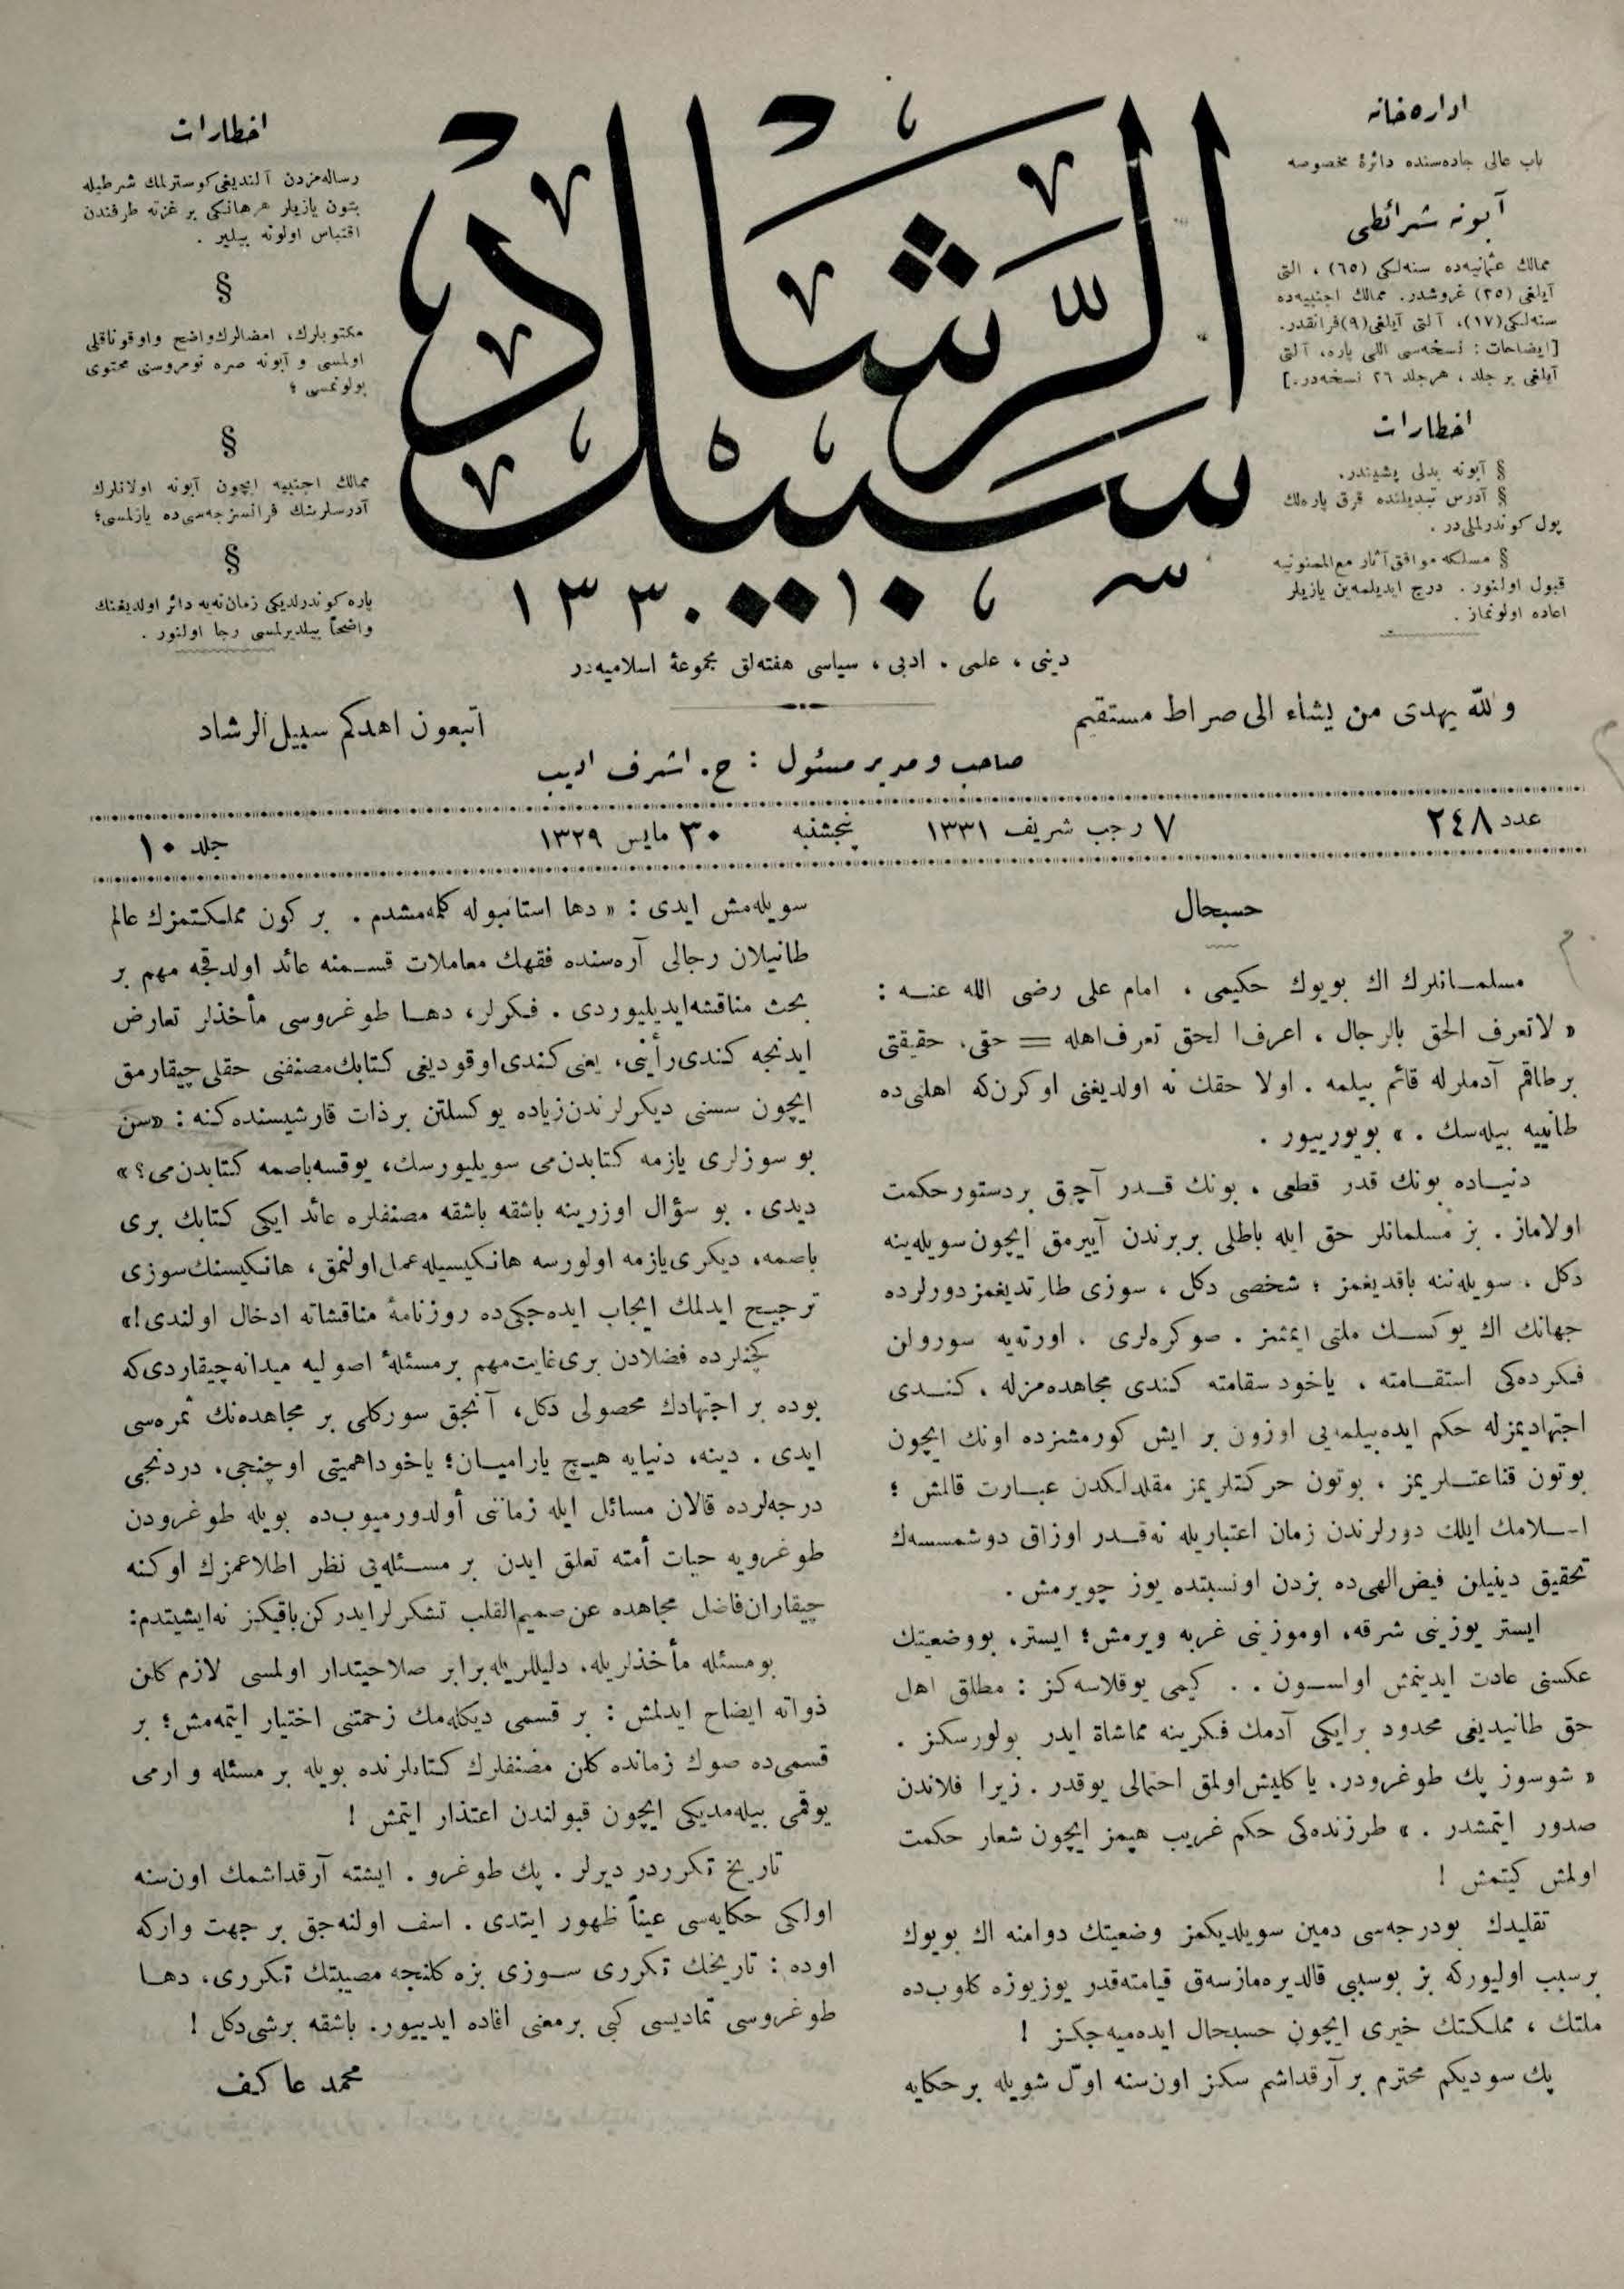 اداره‌خانه
باب عالی جاده‌سنده دائرهٔ مخصوصه
آبونه شرائطی
ممالك عثمانیه‌ده سنه‌لكی (٦٥) ، التی
آیلغی (٣٥) غروشدر. ممالك اجنبیه‌ده
سنه‌لكی(١٧)، آلتی آیلغی(٩)فرانقدر.
[ایضاحات : نسخه‌سی اللی پاره، آلتی
آیلغی بر جلد ، هرجلد ٢٦ نسخه‌در.]
اخطارات
§ آبونه بدلی پشیندر.
§ آدرس تبدیلنده قرق پاره‌لك
پول كوندرلملی‌در .
§ مسلكه موافق آثار مع‌الممنونیه
قبول اولنور . درج ایدیلمه‌ین یازیلر
اعاده اولونماز .
سبیل الرّشاد
١٣٣٠
دینی ، علمی ، ادبی ، سیاسی هفته‌لق مجموعهٔ اسلامیه‌در
اخطارات
رساله‌مزدن آلندیغی كوسترلمك شرطیله
بتون یازیلر هرهانكی بر غزته طرفندن
اقتباس اولونه بیلیر .
§
مكتوبلرك، امضالرك واضح واوقوناقلی
اولمسی و آبونه صره نومروسنی محتوی
بولونمسی ؛
§
ممالك اجنبیه ایچون آبونه اولانلرك
آدرسلرینك فرانسزجه‌سی‌ده یازلمسی؛
§
پاره كوندرلدیكی زمان نه‌یه دائر اولدیغنك
واضحاً بیلدیرلمسی رجا اولنور .
والله یهدی من یشاء الی صراط مستقیم
اتبعون اهدكم سبیل الرشاد
صاحب و مدیر مسئول : ح. اشرف ادیب
عدد ٢٤٨
٧ رجب شریف ١٣٣١
پنجشنبه
٣٠ مایس ١٣٢٩
جلد ١٠
حسبحال
مسلمـانلرك اك بویوك حكیمی ، امام علی رضی الله عنـه :
« لاتعرف الحق بالرجال ، اعرف الحق تعرف اهله = حقی، حقیقتی
بر طاقم آدملرله قائم بیلمه . اولا حقك نه اولدیغنی اوكرن‌كه اهلنی‌ده
طانییه بیله‌سك . » بویورییور .
دنیـاده بونك قدر قطعی ، بونك قـدر آچیق بر دستور حكمت
اولاماز . بز مسلمانلر حق ایله باطلی بربرندن آییرمق ایچون سویله‌ینه
دكل ، سویله‌ننه باقدیغمز ؛ شخصی دكل ، سوزی طارتدیغمز دورلرده
جهانك اك یوكسـك ملتی ایمشز . صوكره‌لری ، اورته‌یه سورولن
فكرده‌كی استقـامته ، یاخود سقامته كندی مجاهده‌مزله ، كنـدی
اجتهادیمزله حكم ایده‌بیلمه‌یی اوزون بر ایش كورمشزده اونك ایچون
بوتون قناعتـلریمز ، بوتون حركتلریمز مقلدلكدن عبـارت قالمش ؛
اسـلامك ایلك دورلرندن زمان اعتباریله نه‌قـدر اوزاق دوشمسه‌ك
تحقیق دینیلن فیض الهی‌ده بزدن اونسبتده یوز چویرمش .
ایستر یوزینی شرقه، اوموزینی غربه ویرمش؛ ایستر، بووضعیتك
عكسنی عادت ایدینمش اولسـون . . كیمی یوقلاسه‌كز : مطلق اهل
حق طانیدیغی محدود بر ایكی آدمك فكرینه مماشاة ایدر بولورسكز .
« شوسوز پك طوغرودر، یاكلیش اولمق احتمالی یوقدر . زیرا فلاندن
صدور ایتمشدر . » طرزنده‌كی حكم غریب هپمز ایچون شعار حكمت
اولمش كیتمش !
تقلیدك بودرجه‌سی دمین سویلدیكمز وضعیتك دوامنه اك بویوك
برسبب اولیوركه بز بوسببی قالدیره‌مازسه‌ق قیامته‌قدر یوزیوزه كلوب‌ده
ملتك ، مملكتك خیری ایچون حسبحال ایده‌میه‌جكز !
پك سودیكم محترم بر آرقداشم سكز اون‌سنه اوّل شویله بر حكایه
سویله‌مش ایدی : « دها استانبوله كلمه‌مشدم . بر كون مملكتمزك عالم
طانیلان رجالی آره‌سنده فقهك معاملات قسـمنه عائد اولدقجه مهم بر
بحث مناقشه ایدیلیوردی . فكرلر، دهـا طوغروسی مأخذلر تعارض
ایدنجه كندی رأینی، یعنی كندی اوقودیغی كتابك مصنفنی حقلی چیقارمق
ایچون سسنی دیكرلرندن زیاده یوكسلتن بر ذات قارشیسنده‌كنه : «سن
بو سوزلری یازمه كتابدن‌می سویلیورسك، یوقسه باصمه كتابدن‌می؟»
دیدی . بو سؤال اوزرینه باشقه باشقه مصنفلره عائد ایكی كتابك بری
باصمه، دیكری یازمه اولورسه هانكیسیله عمل اولنمق، هانكیسنك سوزی
ترجیـح ایدلمك ایجاب ایده‌جكی‌ده روزنامهٔ مناقشاته ادخال اولندی!»
كچنلرده فضلادن بری غایت مهم بر مسئلهٔ اصولیه میدانه چیقاردی كه
بوده بر اجتهادك محصولی دكل، آنجق سوركلی بر مجاهده‌نك ثمره‌سی
ایدی . دینه، دنیایه هیـچ یارامیـان؛ یاخوداهمیتی اوچنجی، دردنجی
درجه‌لرده قالان مسائل ایله زماننی أولدورمیوب‌ده بویله طوغرودن
طوغرویه حیات أمته تعلق ایدن بر مسـئله‌یی نظر اطلاعمزك اوكنه
چیقاران فاضل مجاهده عن صمیم القلب تشكرلر ایدركن باقیكز نه ایشیتدم:
بومسئله مأخذلریله، دلیللریله برابر صلاحیتدار اولمسی لازم كلن
ذواته ایضاح ایدلمش : بر قسمی دیكله‌مك زحمتنی اختیار ایتمه‌مش؛ بر
قسمی‌ده صوك زمانده كلن مصنفلرك كتابلرنده بویله بر مسئله وارمی
یوقمی بیله‌مدیكی ایچون قبولندن اعتذار ایتمش !
تاریخ تكرردر دیرلر . پك طوغرو . ایشته آرقداشمك اون‌سنه
اولكی حكایه‌سی عیناً ظهور ایتدی . اسف اولنه‌جق بر جهت واركه
اوده : تاریخك تكرری سـوزی بزه كلنجه مصیبتك تكرری، دهـا
طوغروسی تمادیسی كبی بر معنی افاده ایدییور. باشقه برشی دكل !
محمد عاكف